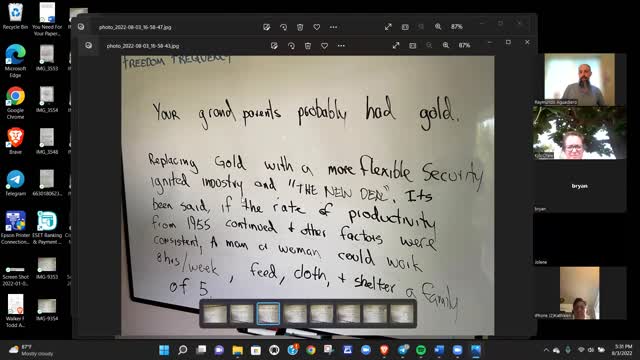 Recycle Bin
You Need For Your Pape...
IMG_3553
Microsoft Edge
IMG_3554
Google Chrome
Brave
IMG_3548
Epson Printer Connection...
ESET Banking & Payment ...
IMG-9353
Screen Shot 2022-01-0...
Walker F Todd A...
IMG-9354
photo_2022-08-03_16-58-47.jpg
87%
photo_2022-08-03_16-58-43.jpg
87%
FREEDOM FREQUENCY
Your grand parents probably had gold.
Replacing Gold with a more flexible Security
ignited industry and "THE NEW DEAL". Its
been said, if the rate of productivity
from 1955 continued + other factors were
consistent, A man or woman could work
8hrs/week, feed, cloth, + shelter a family
of 5.
Raymundo Aguadiero
bryan
bryan
Jolene
87°F
Mostly cloudy
5:31 PM
8/3/2022